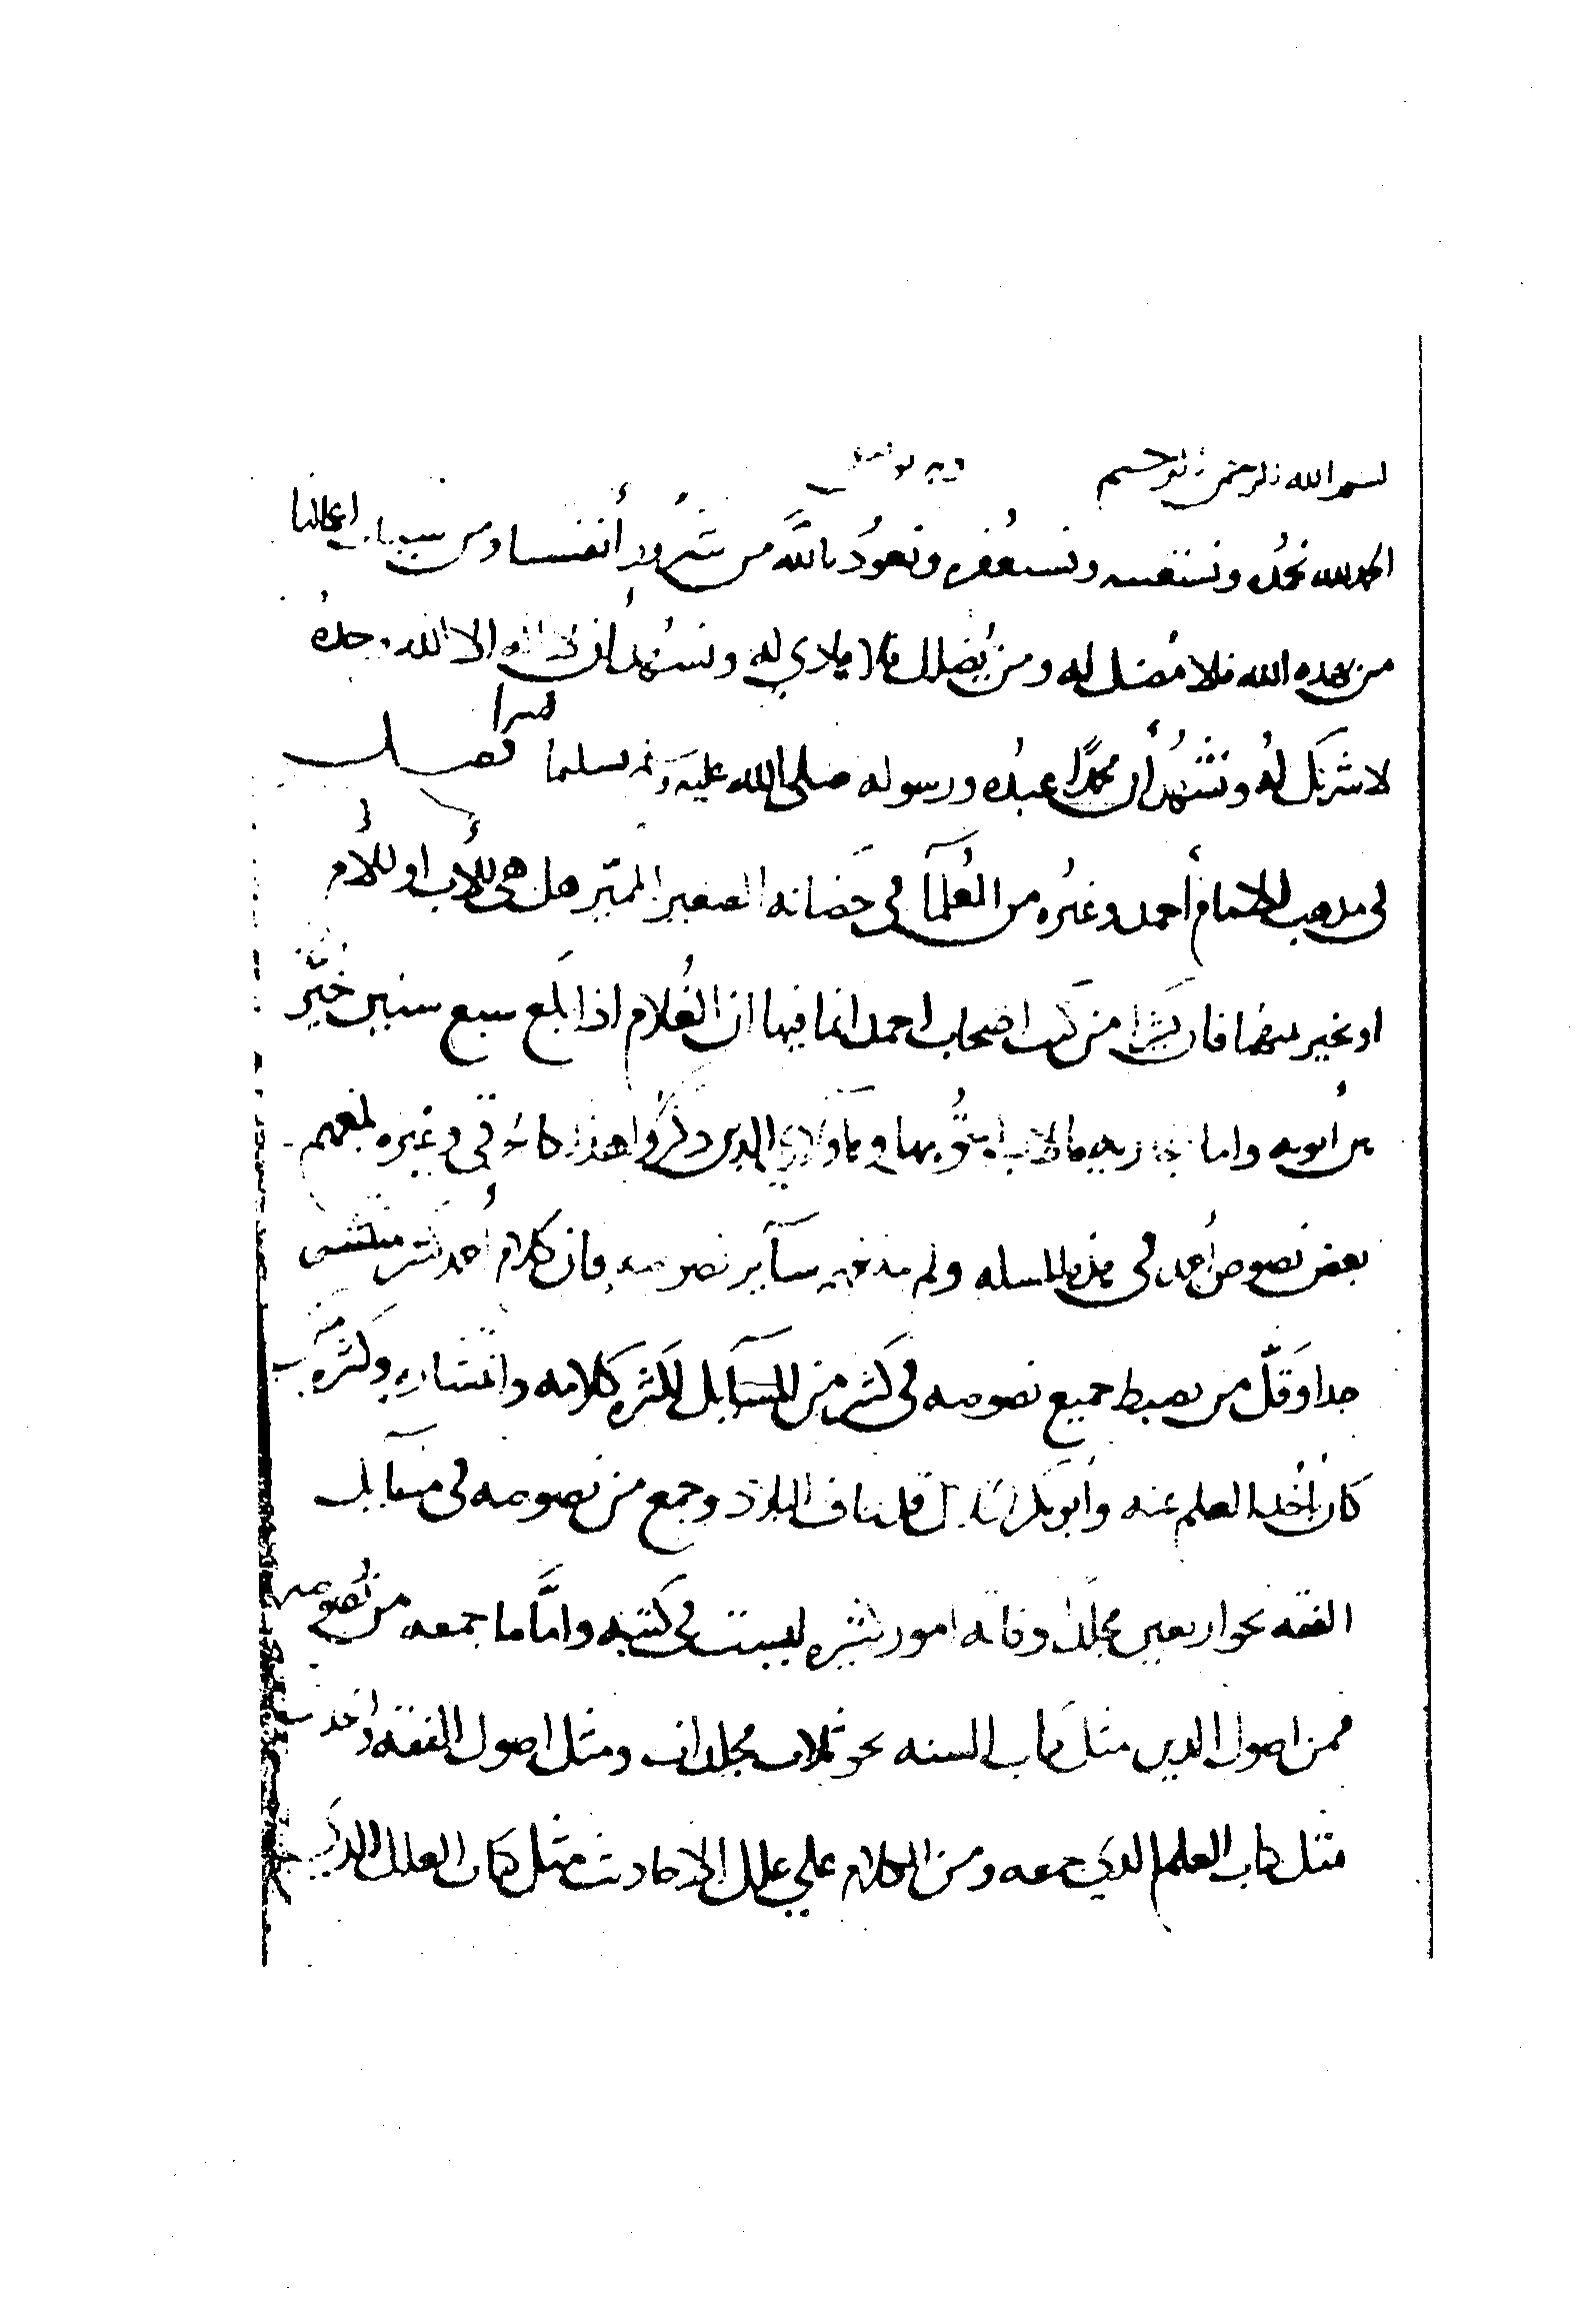 بسم الله الرحمن الرحيم وبه توفيقي
الحمد لله نحمده ونستعينه ونستغفره ونعوذ بالله من شرور أنفسنا ومن سيئات اعمالنا
من يهده الله فلا مضل له ومن يضلل فلا هادي له ونشهد ان لا اله الا الله وحده
لا شريك له ونشهد أن محمدًا عبده ورسوله صلى الله عليه وسلم تسليما كثيرا فصل
في مذهب الإمام أحمد وغيره من العلمآ في حضانه الصغير المميز هل هي للأب او للأم
او يخير بينهما فان كثيرا من كتب اصحاب احمد انما فيها ان الغلام اذا بلغ سبع سنين خُيّر
بين ابويه واما الجاريه فالاب احق بها وهآولاء الذين ذكروا هذا كالخرقي وغيره بلغهم
بعض نصوص أحمد في هذه المسله ولم يبلغهم سآير نصوصه فان كلام أحمد كثير منتشر
جدا وقلّ من يضبط جميع نصوصه في كثير من المسآيل لكثره كلامه وانتشاره وكثره من
كان يأخذ العلم عنه وأبو بكر الخلال قد طاف البلاد وجمع من نصوصه في مسآيل
الفقه نحو اربعين مجلدا وفاته امور كثيره ليست في كتبه وامّا ما جمعه من نصوصه
فمن اصول الدين مثل كتاب السنه نحو ثلاث مجلدات ومثل اصول الفقه والحديث
مثل كتاب العلم الذي جمعه ومن الكلام علي علل الاحاديث مثل كتاب العلل الذي